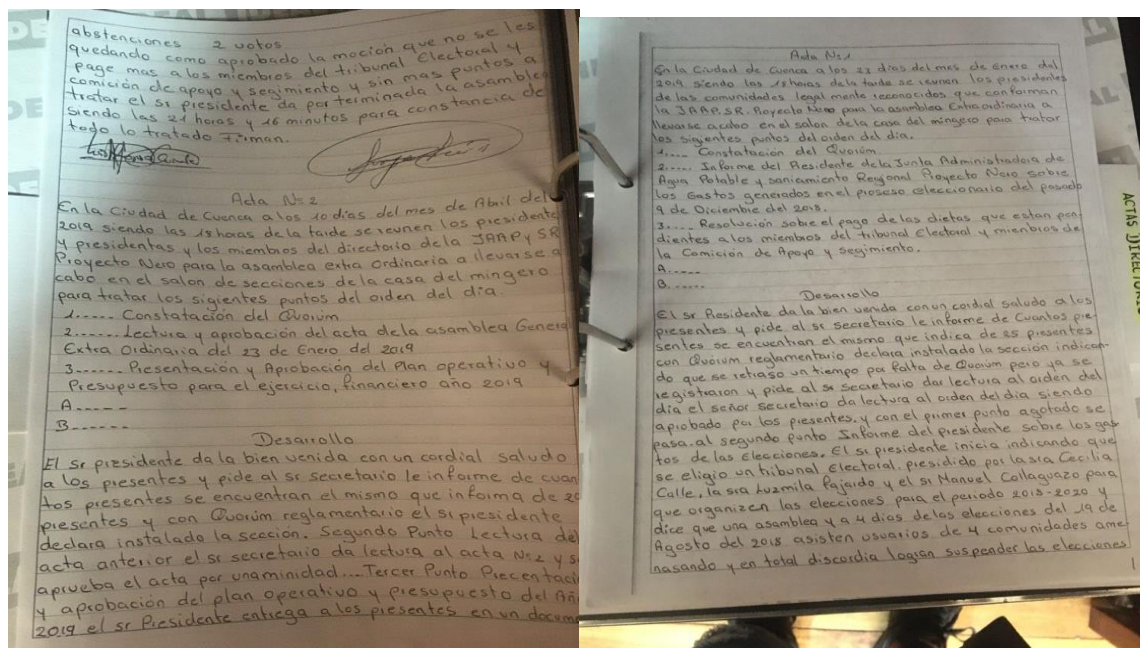 abstenciones 2 votos
quedando como aprobado la moción que no se les
page mas a los miembros del tribunal Electoral y
comición de apoyo y segimiento y sin mas puntos a
tratar el sr presidente da por terminada la asamblea
siendo las 21 horas y 16 minutos para constancia de
todo lo tratado Firman.
Acta N=2
En la Ciudad de Cuenca a los 10 dias del mes de Abril del
2019 siendo las 18 horas de la tarde se reunen los presidente
y presidentas y los miembros del directorio de la JAAP y SR
Proyecto Nero para la asamblea extra ordinaria a llevarse a
cabo en el salon de secciones de la casa del mingero
para tratar los sigientes puntos del orden del dia.
1...... Constatación del Quorúm
2...... Lectura y aprobación del acta de la asamblea Genera
Extra Ordinaria del 23 de Enero del 2019
3...... Presentación y Aprobación del Plan operativo y
Presupuesto para el ejercicio, financiero año 2019
A......
B......
Desarrollo
El sr presidente da la bien venida con un cordial saludo
a los presentes y pide al sr secretario le informe de cuan
tos presentes se encuentran el mismo que informa de 20
presentes y con Quorúm reglamentario el sr presidente
declara instalado la sección. Segundo Punto Lectura del
acta anterior el sr secretario da lectura al acta N=2 y s
aprueba el acta por unaminidad.... Tercer Punto Precentaci
y aprobación del plan operativo y presupuesto del Añ
2019 el sr Presidente entrega a los presentes en un docum
Acta N=1
En la Ciudad de Cuenca a los 23 dias del mes de Enero del
2019 siendo las 18 horas de la tarde se reunen los presidentes
de las comunidades legal mente reconocidos que conforman
la JAAP.SR. Proyecto Nero para la asamblea Extra ordinaria a
llevarse a cabo en el salon de la casa del mingero para tratar
los sigientes puntos del orden del dia.
1.... Constatación del Quorúm.
2..... Informe del Presidente de la Junta Administradora de
Agua Potable y saniamiento Regional Proyecto Nero sobre
los Gastos generados en el proseso eleccionario del pasado
9 de Diciembre del 2018.
3.... Resolución sobre el pago de las dietas que estan pen
dientes a los miembros del tribunal Electoral y miembros de
la Comición de Apoyo y Segimiento.
A.....
B......
Desarrollo
El sr Presidente da la bien venida con un cordial saludo a los
presentes y pide al sr secretario le informe de Cuantos pre-
sentes se encuentran el mismo que indica de 25 presentes
con Quorúm reglamentario declara instalado la sección indican-
do que se retraso un tiempo por falta de Quorum pero ya se
registraron y pide al sr Secretario dar lectura al orden del
dia el señor secretario da lectura al orden del dia siendo
aprobado por los presentes. y con el primer punto agotado se
pasa. al segundo punto Informe del presidente sobre los gas
tos de las elecciones. El sr presidente inicia indicando que
se eligio un tribunal Electoral. presidido por la sra Cecilia
Calle, la sra Luzmila Fajardo y el sr Manuel Collaguazo para
que organizen las elecciones para el periodo 2018-2020 y
dice que una asamblea y a 4 dias de las elecciones del 19 de
Agosto del 2018 asisten usuarios de 4 comunidades ame
nasando y en total discordia logran suspender las elecciones
1